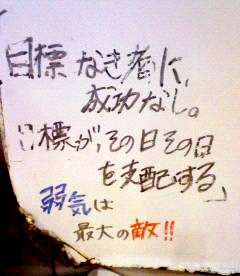 目標なき者に、
成功なし。
「目標がその日その日
を支配する」
弱気は
最大の敵!!